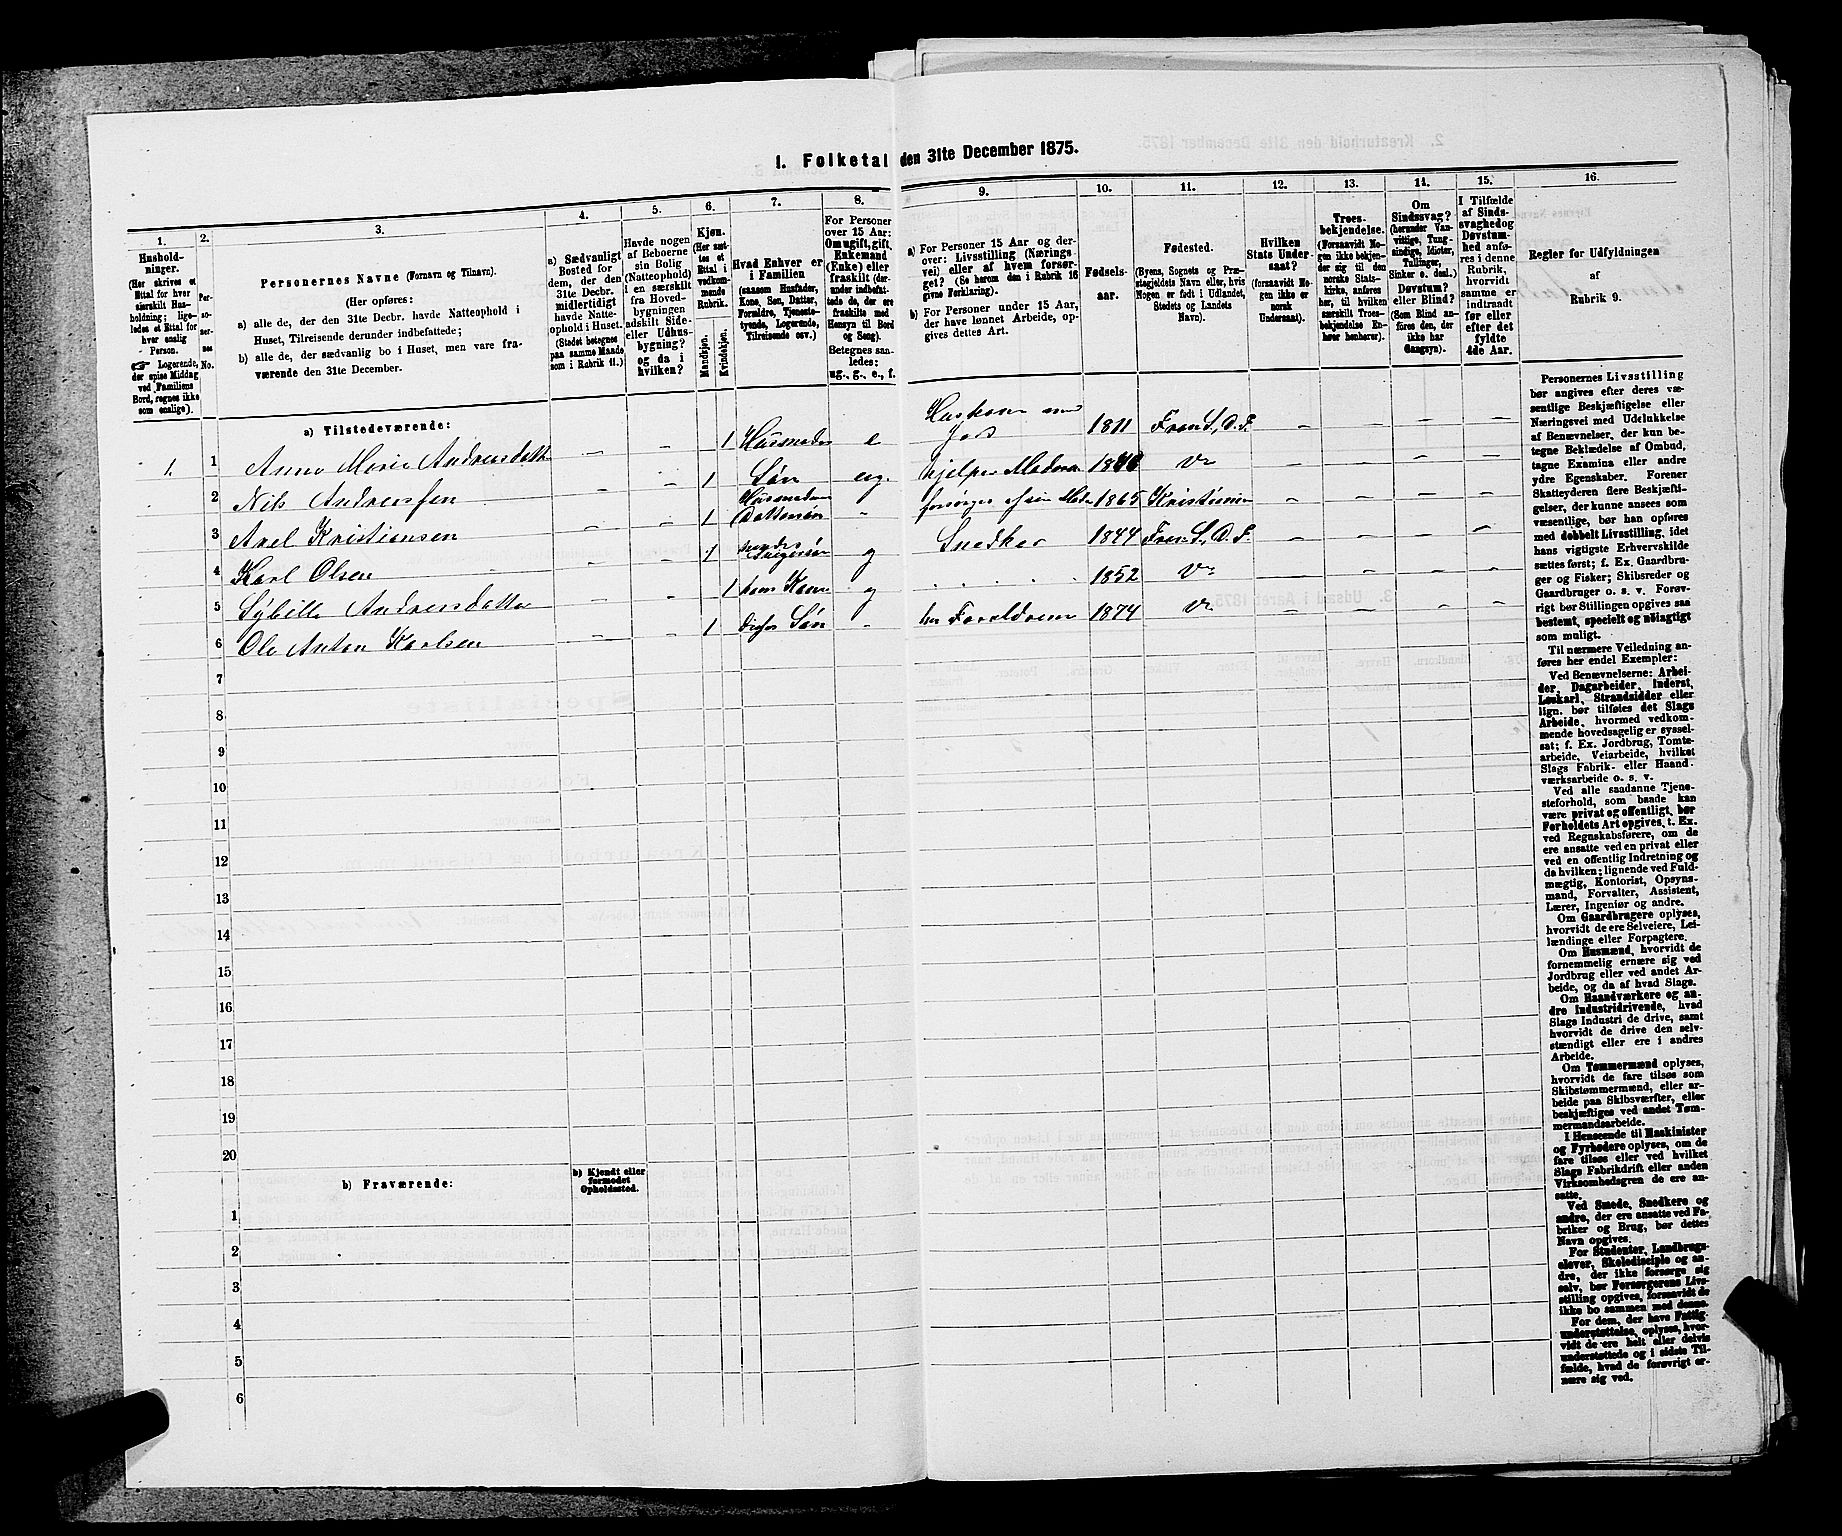 1. Folketal den 31te December 1875.
1.
Hushold-
ninger.
(Her skrives et
Ettal for hver
særskilt Hus-
holdning; lige-
ledes et Ettal for
hver enslig
Person.
☞ Logerende,
der spise Middag
ved Familiens
Bord, regnes ikke
som enslige).
2.
Per-
so-
ner-
nes
No.
3.
Personernes Navne (Fornavn og Tilnavn).
(Her opføres:
a) alle de, der den 31te Decbr. havde Natteophold i
Huset, Tilreisende derunder indbefattede;
b) alle de, der sædvanlig bo i Huset, men vare fra-
værende den 31te December.
4.
a) Sædvanligt
Bosted for
dem, der den
31te Decbr.
midlertidigt
havde Natte-
ophold i Huset.
(Stedet betegnes
paa samme Maade
som i Rubrik 11.)
5.
Havde nogen
af Beboerne
sin Bolig
(Natteophold)
i en særskilt
fra Hoved-
bygningen
adskilt Side-
eller Udhus-
bygning?
og da i
hvilken?
6.
Kjøn.
(Her sæt-
tes et
Ettal i
vedkom-
mende
Rubrik.
Mandkjøn.
Kvindekjøn.
7.
Hvad Enhver er
i Familien
(saasom Husfader,
Kone, Søn, Datter,
Forældre, Tjeneste-
tyende, Logerende,
Tilreisende osv.)
8.
For Personer
over 15 Aar:
Om ugift, gift,
Enkemand
(Enke) eller
fraskilt (der-
under indbefat-
tede de, der ere
fraskilte med
Hensyn til Bord
og Seng).
Betegnes saa-
ledes:
ug., g., e., f.
9.
a) For Personer 15 Aar og der-
over: Livsstilling (Nærings-
vei) eller af hvem forsør-
get? (Se herom den i Rubrik 16
givne Forklaring).
b) For Personer under 15 Aar,
der have lønnet Arbeide, op-
gives dettes Art.
10.
Fødsels-
aar.
11.
Fødested.
(Byens, Sognets og Præ-
stegjeldets Navn eller, hvis
Nogen er født i Udlandet,
Stedets og Landets
Navn).
12.
Hvilken
Stats Under-
saat?
(forsaavidt No-
gen ikke er
norsk
Undersaat).
13.
Troes-
bekjendelse.
(Forsaavidt No-
gen ikke bekjen-
der sig til den
norske Stats-
kirke, anføres
her, til hvilken
særskilt Troes-
bekjendelse En-
hver henhører).
14.
Om
Sindssvag?
(herunder Van-
vittige, Tung-
sindige, Idioter,
Tullinger,
Sinker o. desl.)
Døvstum?
eller Blind?
(Som Blind an-
føres den, der
ikke har
Gangsyn).
15.
I Tilfælde
af Sinds-
svaghed og
Døvstum-
hed anfø-
res i denne
Rubrik,
hvorvidt
samme er
indtraadt
før eller
efter det
fyldte
4de Aar.
16.
Regler for Udfyldningen
af
Rubrik 9.
a) Tilstedeværende:
1. 1 Anne Marie Andreasdatter – – 1 Husmoder e Huskone med Jord 1811 Fron S., D. F. – – – –
2 Nils Andreasen – – 1 Søn ug. hjelper Moderen – – – –
3 Axel Kristiansen – – 1 Husmoderens Dattersøn – 1865 Kristiania – – – –
4 Karl Olsen – – 1 g Snedker 1844 Fron S., D. F. – – – –
5 Sybille Andreasdatter – – 1 hans Kone g 1852 – – – –
6 Ole Anton Karlsen – – 1 Søn – 1874 – – – –
7
8
9
10
11
12
13
14
15
16
17
18
19
20
b) Fraværende:
b) Kjendt eller
formodet
Opholdssted.
1
2
3
4
5
6
Personernes Livsstilling
bør angives efter deres væ-
sentlige Beskjæftigelse eller
Næringsvei med Udelukkelse
af Benævnelser, der kun be-
tegne Beklædelse af Ombud,
tagne Examina eller andre
ydre Egenskaber. Forener
Skatteyderen flere Beskjæfti-
gelser, der kunne ansees som
væsentlige, bør han opføres
med dobbelt Livsstilling, idet
hans vigtigste Erhvervskilde
sættes først; f. Ex. Gaardbru-
ger og Fisker; Skibsreder og
Gaardbruger o. s. v. Forøv-
rigt bør Stillingen opgives saa
bestemt, specielt og nöiagtigt
som muligt.
Til nærmere Veiledning an-
føres her endel Exempler:
Ved Benævnelserne: Arbei-
der, Dagarbeider, Inderst,
Løskarl, Strandsidder eller
lign. bør tilføies det Slags
Arbeide, hvormed vedkom-
mende hovedsagelig er syssel-
sat; f. Ex. Jordbrug, Tomte-
arbeide, Veiarbeide, hvilket
Slags Fabrik- eller Haand-
værksarbeide o. s. v.
Ved alle saadanne Tjene-
steforhold, som baade kan
være privat og offentligt, bør
Forholdets Art opgives, t. Ex.
ved Regnskabsførere, om de
ere ansatte ved en privat eller
ved en offentlig Indretning og
da hvilken; lignende ved Fuld-
mægtig, Kontorist, Opsyns-
mand, Forvalter, Assistent,
Lærer, Ingeniør og andre.
Om Gaardbrugere oplyses,
hvorvidt de ere Selveiere, Lei-
lændinge eller Forpagtere.
Om Husmænd, hvorvidt de
fornemmelig ernære sig ved
Jordbrug eller ved andet Ar-
beide, og da af hvad Slags.
Om Haandværkere og an-
dre Industridrivende, hvad
Slags Industri de drive, samt
hvorvidt de drive den selv-
stændigt eller ere i andres
Arbeide.
Om Tømmermænd oplyses,
hvorvidt de fare tilsøs som
Skibstømmermænd, eller ar-
beide paa Skibsværfter, eller
beskjæftiges ved andet Tøm-
mermandsarbeide.
I Henseende til Maskinister
og Fyrbødere oplyses, om de
fare tilsøs eller ved hvilket
Slags Fabrikdrift eller anden
Virksomhedsgren de ere an-
satte.
Ved Smede, Snedkere og
andre, der ere ansatte ved Fa-
briker og Brug, bør dettes
Navn opgives.
For Studenter, Landbrugs-
elever, Skoledisciple og an-
dre, der ikke forsørge sig
selv, bør Forsørgerens Livs-
stilling opgives, forsaavidt de
ikke bo sammen med denne.
For dem, der have Fattig-
understøttelse, oplyses, hvor-
vidt de ere helt eller delvis
understøttede og i sidste Til-
fælde, hvad de forøvrigt er-
nære sig ved.